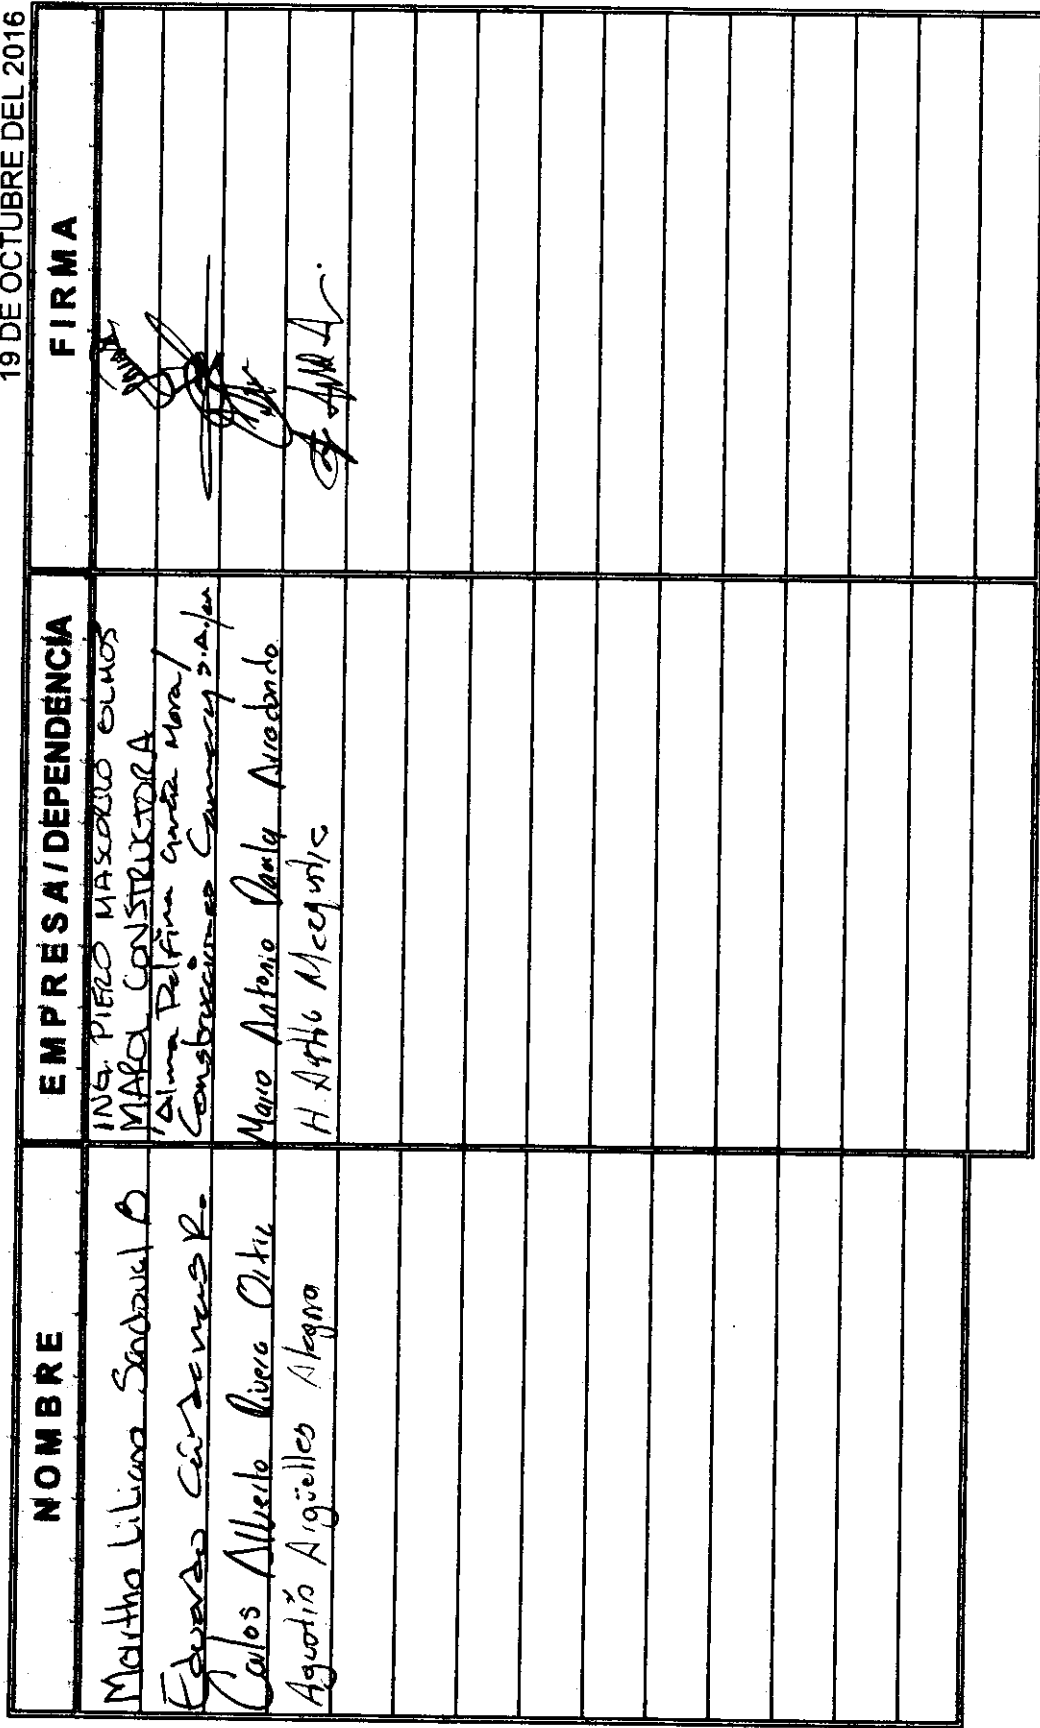 19 DE OCTUBRE DEL 2016
NOMBRE EMPRESA/DEPENDENCIA FIRMA
Martha Liliana Sandoval B ING. PIERO MASCORRO OLMOS
MAROL CONSTRUCTORA
Eduardo Cárdenas R. Alma Delfina García Mora/
Construcciones
Carlos Alberto Rivera Ortiz Mario Antonio Arredondo
Agustín Argüelles Alegría H.